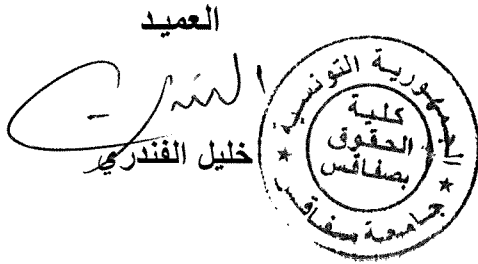 العميد
خليل الفندري
الجمهورية التونسية
كلية
الحقوق
بصفاقس
جامعة صفاقس